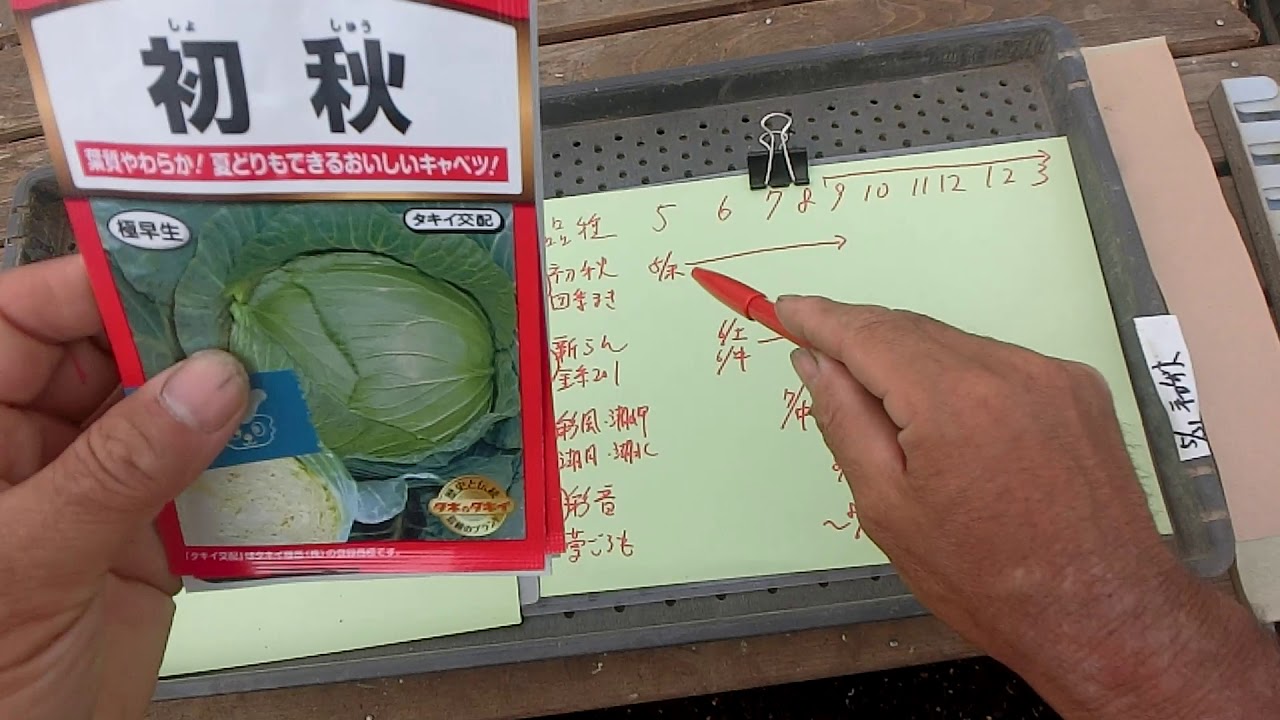 しょ しゅう
初秋
葉質やわらか! 夏どりもできるおいしいキャベツ!
極早生
タキイ交配
歴史と伝統
タネのタキイ
「タキイ交配」はタキイ種苗(株)の登録商標です。
品種 5 6 7 8 9 10 11 12 1 2 3
初秋 5/末
四季まき
新らん 6/上
金系201 6/中
彩風・潮岬 7/中
潮月・潮北
彩音
夢ごろも
5/31 初秋